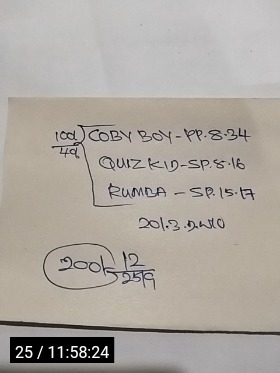 100/) COBY BOY - PP. 8.34
QUIZ KID - SP. 8.16
RUMBA - SP. 15.17
200/-
12
25/9
25 / 11:58:24